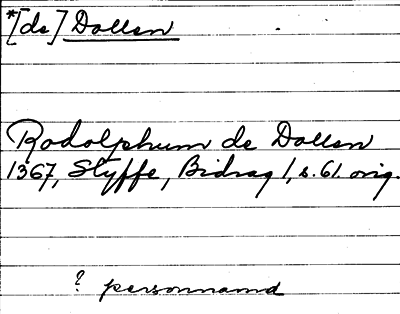 *[de] Dollen
Rodolphum de Dollen
1367, Styffe, Bidrag 1, s. 61. orig.
? personnamn